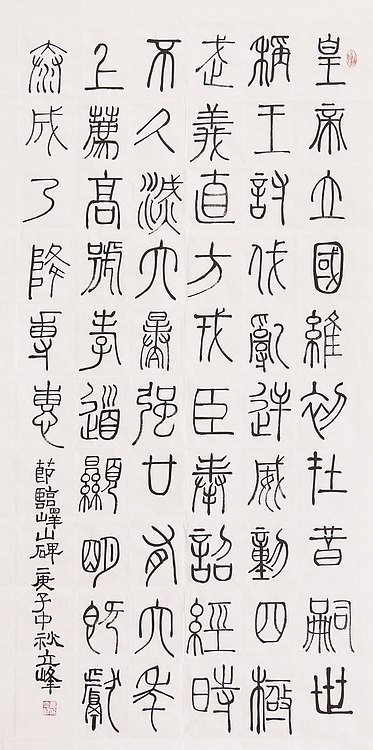 皇帝立國維初在昔嗣世
稱王討伐亂逆威動四極
武義直方戎臣奉詔經時
不久滅六暴强廿有六年
上薦高號孝道顯明既獻
泰成乃降專惠
節臨嶧山碑 庚子中秋立峰